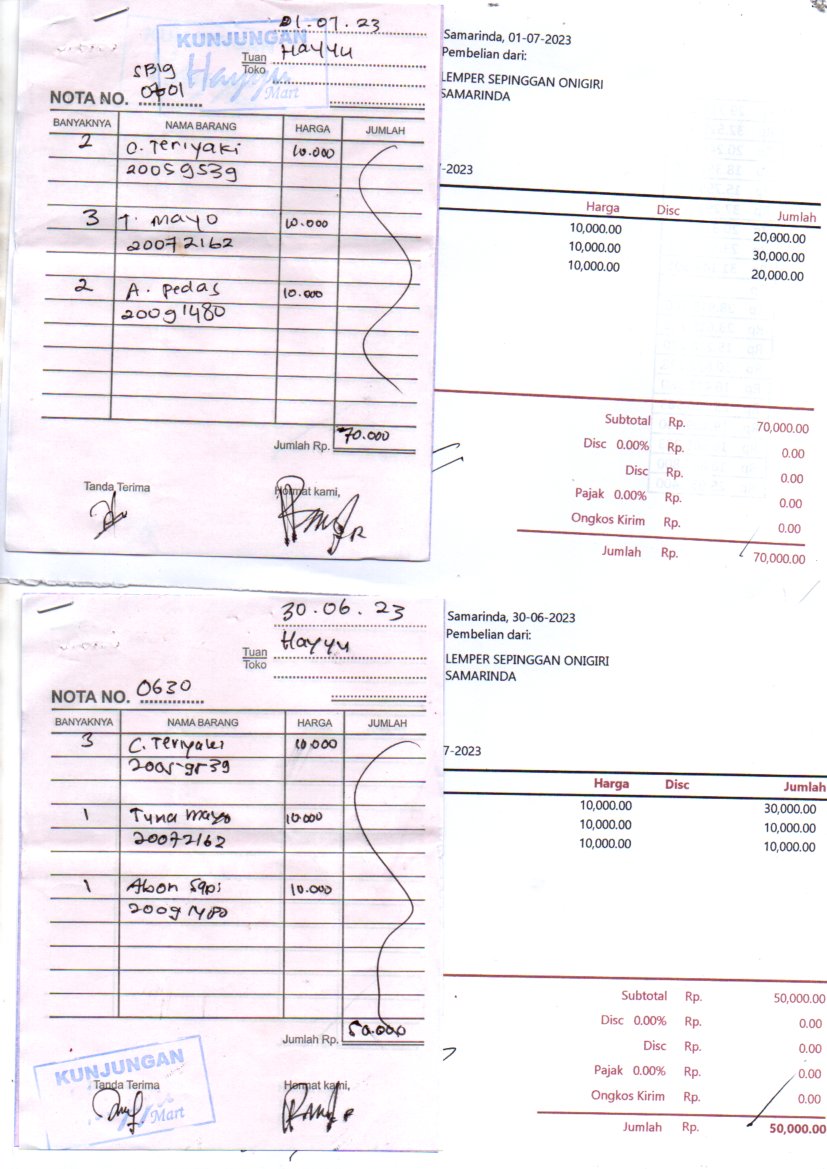 01.07.23
KUNJUNGAN
Hayyu
Mart
Tuan
Toko
Hayyu
SBIG
NOTA NO. 0701
BANYAKNYA NAMA BARANG HARGA JUMLAH
2 C. Teriyaki 10.000
20059539
3 T. mayo 10.000
20072162
2 A. pedas 10.000
20091480
Jumlah Rp. 70.000
Tanda Terima Hormat kami,
Samarinda, 01-07-2023
Pembelian dari:
LEMPER SEPINGGAN ONIGIRI
SAMARINDA
-2023
Harga Disc Jumlah
10,000.00 20,000.00
10,000.00 30,000.00
10,000.00 20,000.00
Subtotal Rp. 70,000.00
Disc 0.00% Rp. 0.00
Disc Rp. 0.00
Pajak 0.00% Rp. 0.00
Ongkos Kirim Rp. 0.00
Jumlah Rp. 70,000.00
30.06.23
Tuan
Toko
Hayyu
NOTA NO. 0630
BANYAKNYA NAMA BARANG HARGA JUMLAH
3 C. Teriyaki 10.000
20059539
1 Tuna mayo 10.000
20072162
1 Abon Sapi 10.000
20091480
Jumlah Rp. 50.000
KUNJUNGAN
Mart
Tanda Terima Hormat kami,
Samarinda, 30-06-2023
Pembelian dari:
LEMPER SEPINGGAN ONIGIRI
SAMARINDA
7-2023
Harga Disc Jumlah
10,000.00 30,000.00
10,000.00 10,000.00
10,000.00 10,000.00
Subtotal Rp. 50,000.00
Disc 0.00% Rp. 0.00
Disc Rp. 0.00
Pajak 0.00% Rp. 0.00
Ongkos Kirim Rp. 0.00
Jumlah Rp. 50,000.00